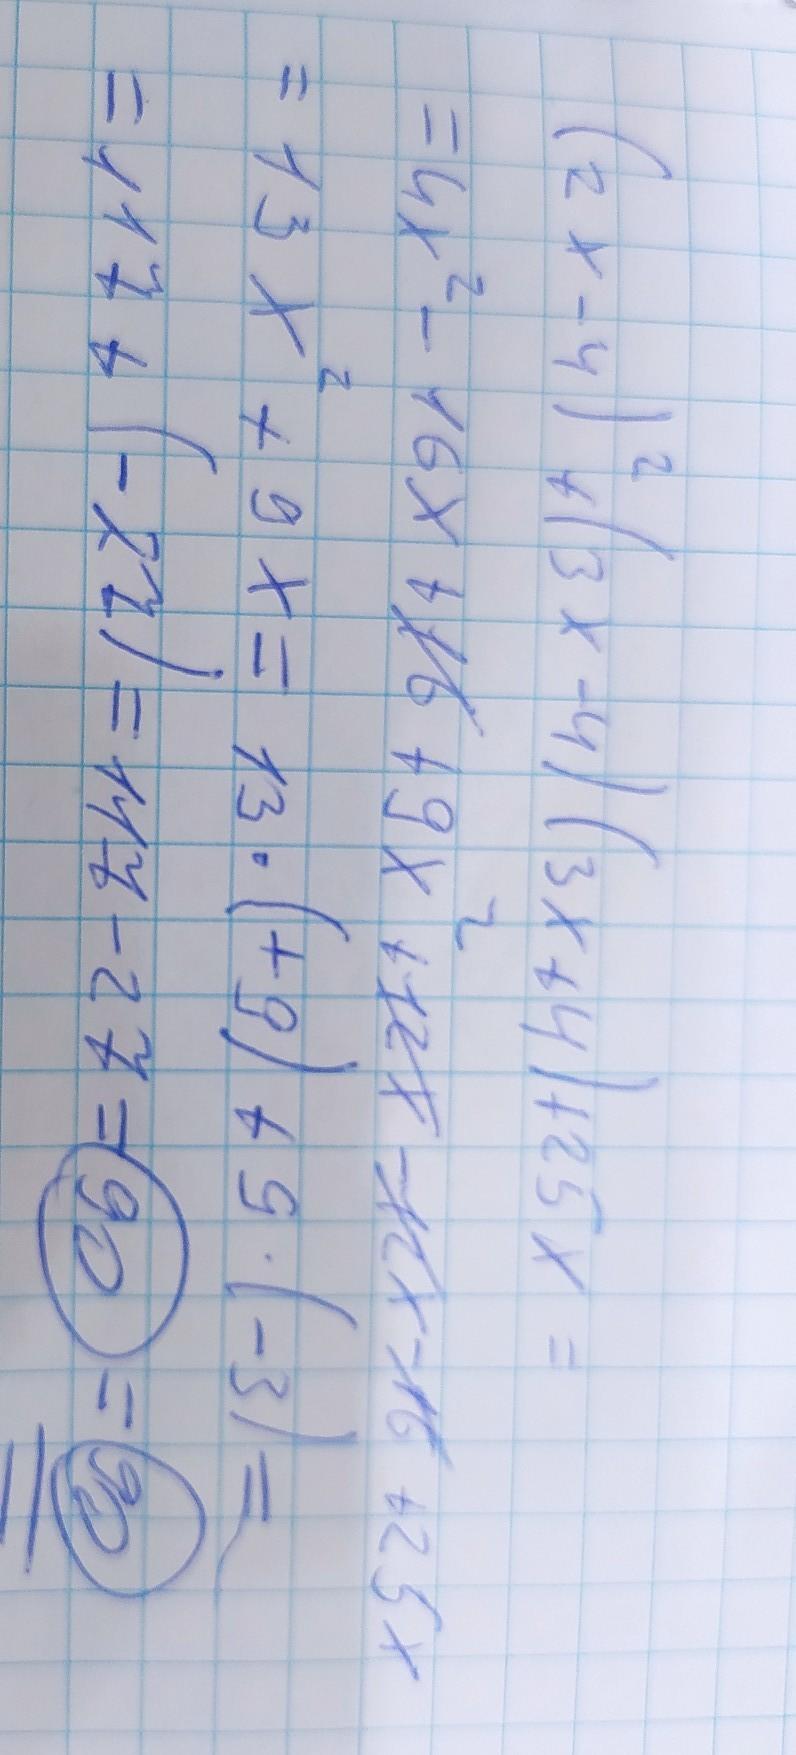 (2x-4)² + (3x-4)(3x+4)+25x =
=4x² - 16x + 16 + 9x² + 12x - 12x - 16 + 25x
= 13x² + 9x = 13 · (+9) + 9 · (-3) =
= 117 + (-27) = 117 - 27 = 90 = 90